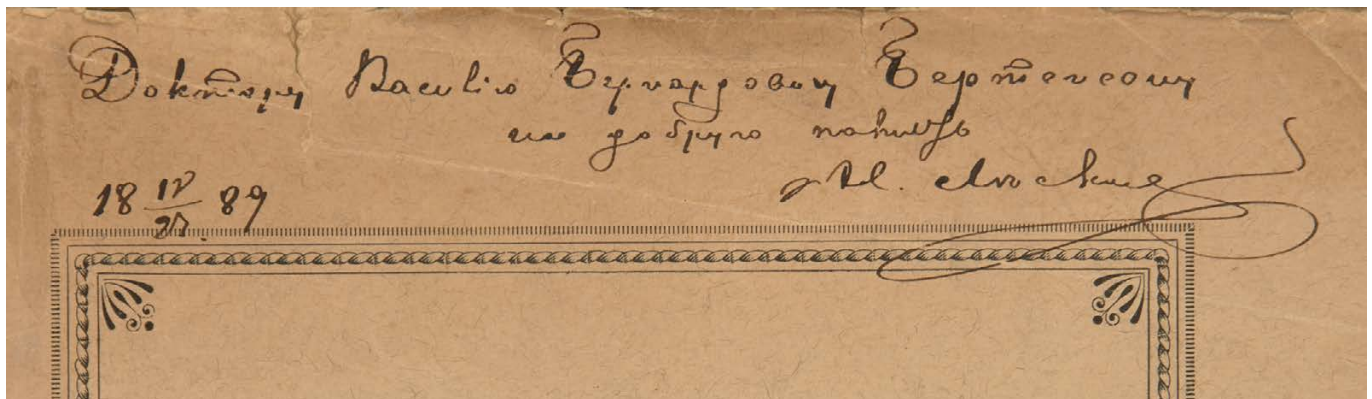 Доктору Василію Бернардовичу Бертенсону
на добрую память
18 IV/27. 89